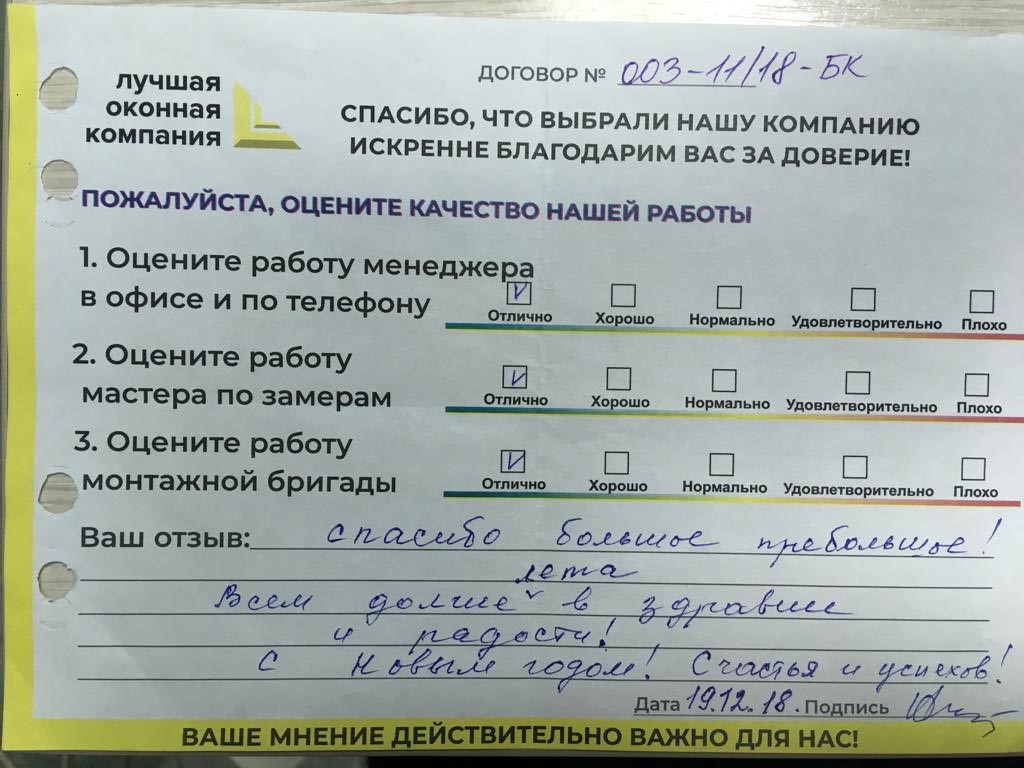 лучшая
оконная
компания
ДОГОВОР № 003-11/18-БК
СПАСИБО, ЧТО ВЫБРАЛИ НАШУ КОМПАНИЮ
ИСКРЕННЕ БЛАГОДАРИМ ВАС ЗА ДОВЕРИЕ!
ПОЖАЛУЙСТА, ОЦЕНИТЕ КАЧЕСТВО НАШЕЙ РАБОТЫ
1. Оцените работу менеджера
в офисе и по телефону
Отлично Хорошо Нормально Удовлетворительно Плохо
2. Оцените работу
мастера по замерам
Отлично Хорошо Нормально Удовлетворительно Плохо
3. Оцените работу
монтажной бригады
Отлично Хорошо Нормально Удовлетворительно Плохо
Ваш отзыв: спасибо большое пребольшое!
лета
Всем долгие в здравии
и радости!
С Новым годом! Счастья и успехов!
Дата 19.12.18. Подпись
ВАШЕ МНЕНИЕ ДЕЙСТВИТЕЛЬНО ВАЖНО ДЛЯ НАС!